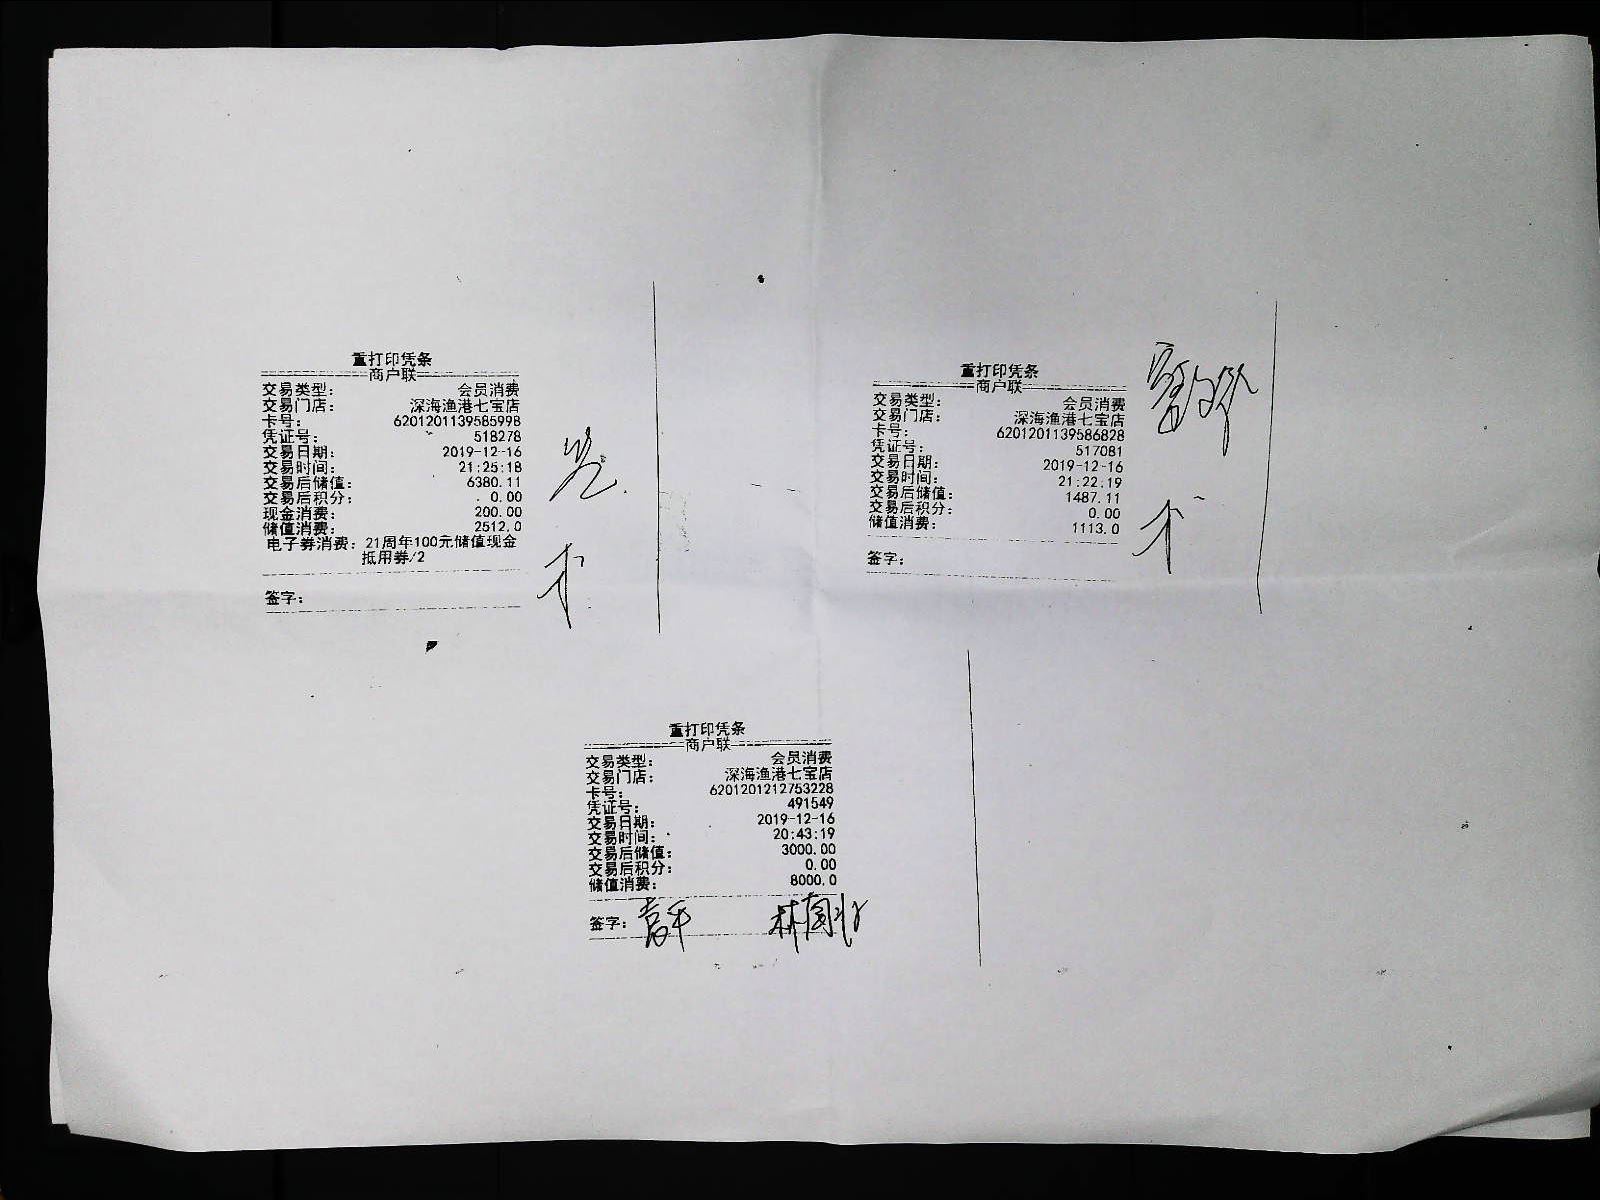 重打印凭条
商户联
交易类型: 会员消费
交易门店: 深海渔港七宝店
卡号: 6201201139585998
凭证号: 518278
交易日期: 2019-12-16
交易时间: 21:25:18
交易后储值: 6380.11
交易后积分: 0.00
现金消费: 200.00
储值消费: 2512.0
电子券消费: 21周年100元储值现金
抵用券/2
签字:
重打印凭条
商户联
交易类型: 会员消费
交易门店: 深海渔港七宝店
卡号: 6201201139586828
凭证号: 517081
交易日期: 2019-12-16
交易时间: 21:22:19
交易后储值: 1487.11
交易后积分: 0.00
储值消费: 1113.0
签字:
重打印凭条
商户联
交易类型: 会员消费
交易门店: 深海渔港七宝店
卡号: 6201201212753228
凭证号: 491549
交易日期: 2019-12-16
交易时间: 20:43:19
交易后储值: 3000.00
交易后积分: 0.00
储值消费: 8000.0
签字: